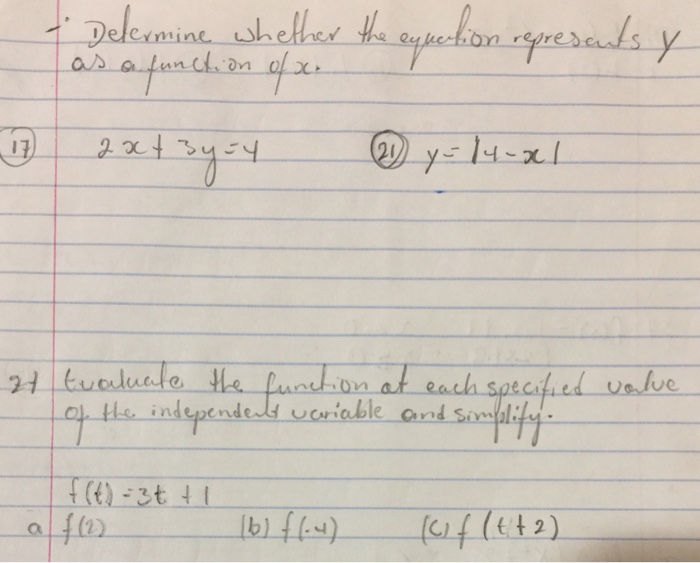 Determine whether the equation represents y
as a function of x.
17 2x + 3y = 4 21 y = |4 - x|
27 Evaluate the function at each specified value
of the independent variable and simplify.
f(t) = 3t + 1
a f(2) (b) f(-4) (c) f(t + 2)